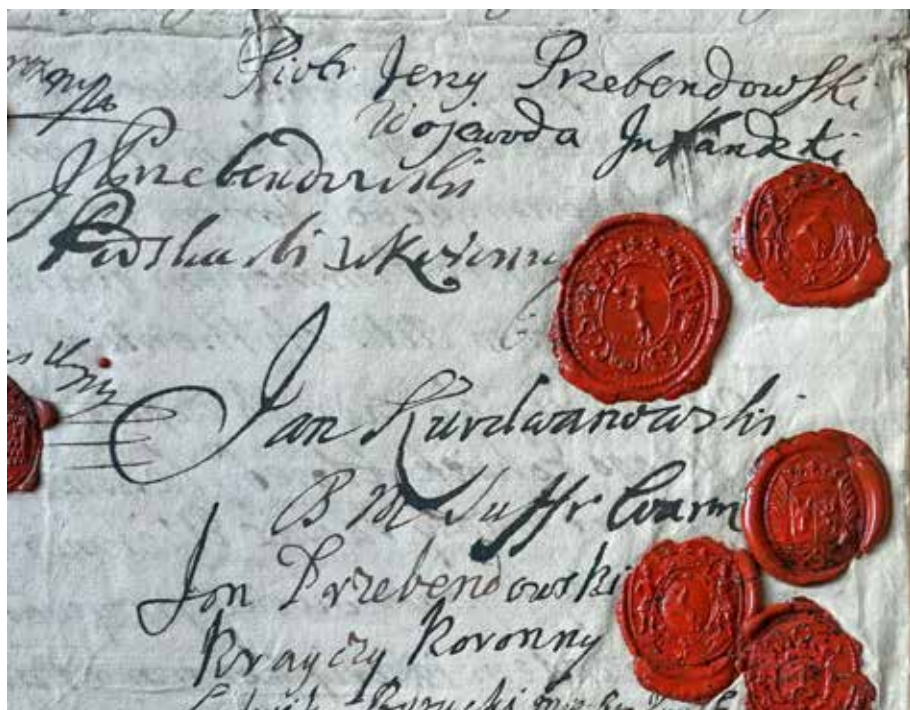 Piotr Jerzy Przebendowski
Wojewoda Inflandzki
J Przebendowski
Podskarbi
Jan Kurdwanowski
B M Suffr Warm
Jan Przebendowski
Krayczy Koronny